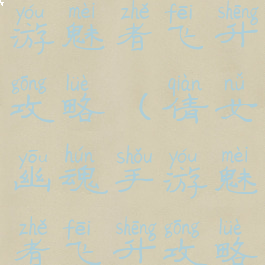 yóu mèi zhě fēi shēng
游魅者飞升
gōng lüè qiàn nǚ
攻略（倩女
yōu hún shǒu yóu mèi
幽魂手游魅
zhě fēi shēng gōng lüè
者飞升攻略